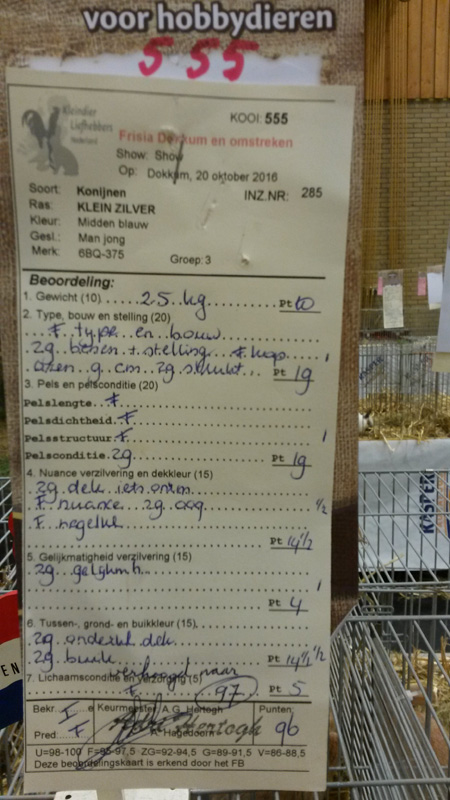 voor hobbydieren
555
Kleindier
Liefhebbers
Nederland
KOOI: 555
Frisia Dokkum en omstreken
Show: Show
Op: Dokkum, 20 oktober 2016
Soort: Konijnen INZ.NR: 285
Ras: KLEIN ZILVER
Kleur: Midden blauw
Gesl.: Man jong
Merk: 6BQ-375 Groep: 3
Beoordeling:
1. Gewicht (10) 2.5 kg Pt 10
2. Type, bouw en stelling (20)
F type en bouw
zg benen + stelling F kop 1
oren g cm zg Pt 19
3. Pels en pelsconditie (20)
Pelslengte F
Pelsdichtheid F
Pelsstructuur F 1
Pelsconditie zg Pt 19
4. Nuance verzilvering en dekkleur (15)
zg dek iets
F nuance zg oog 1/2
F nagelkl Pt 14 1/2
5. Gelijkmatigheid verzilvering (15)
zg gelijkm h 1
Pt 4
6. Tussen-, grond- en buikkleur (15)
zg onderkl dek
zg buik Pt 14 1/2 1/2
verhoogd naar
7. Lichaamsconditie en verzorging (5) F 97 Pt 5
Bekr. F Keurmeester: A.G. Hertogh Punten:
Pred. F Hertogh R. Hagedoorn 96
U=98-100 F=95-97,5 ZG=92-94,5 G=89-91,5 V=86-88,5
Deze beoordelingskaart is erkend door het FB
KASPER
EN